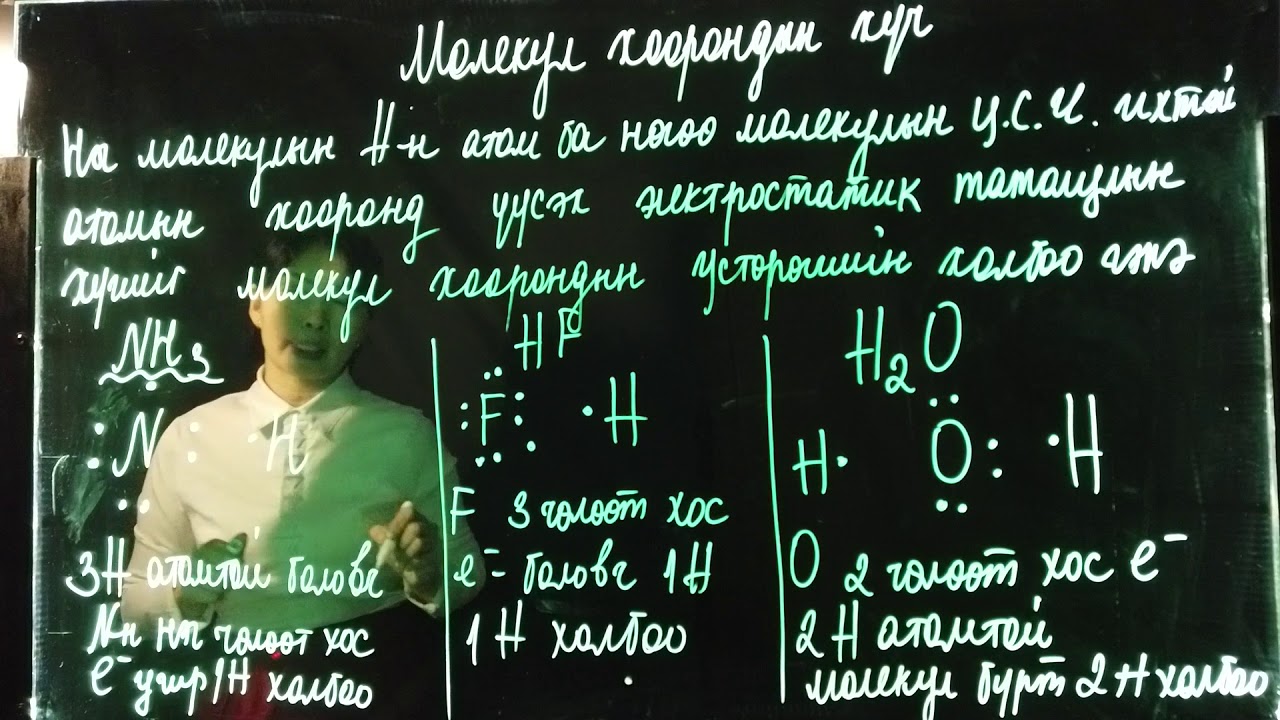 Молекул хоорондын хүч
Нэг молекулын H-н атом ба нөгөө молекулын Ц.С.Ч. ихтэй
атомын хооронд үүсэх электростатик таталцлын
хүчийг молекул хоорондын устөрөгчийн холбоо гэнэ
NH3
HF
H2O
:N: ·H
:F: ·H
H· O: ·H
3H атомтай боловч
N-н нэг чөлөөт хос
e⁻ учир 1H холбоо
F 3 чөлөөт хос
e⁻ боловч 1H
1 H холбоо
O 2 чөлөөт хос e⁻
2 H атомтай
молекул бүрт 2 H холбоо